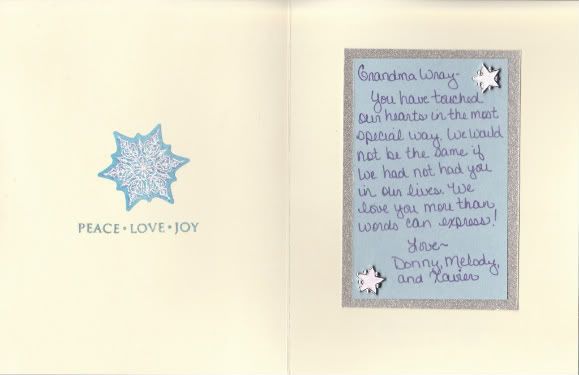 PEACE • LOVE • JOY
Grandma Wray-
You have touched
our hearts in the most
special way. We would
not be the same if
we had not had you
in our lives. We
love you more than
words can express!
Love~
Donny, Melody,
and Xavier